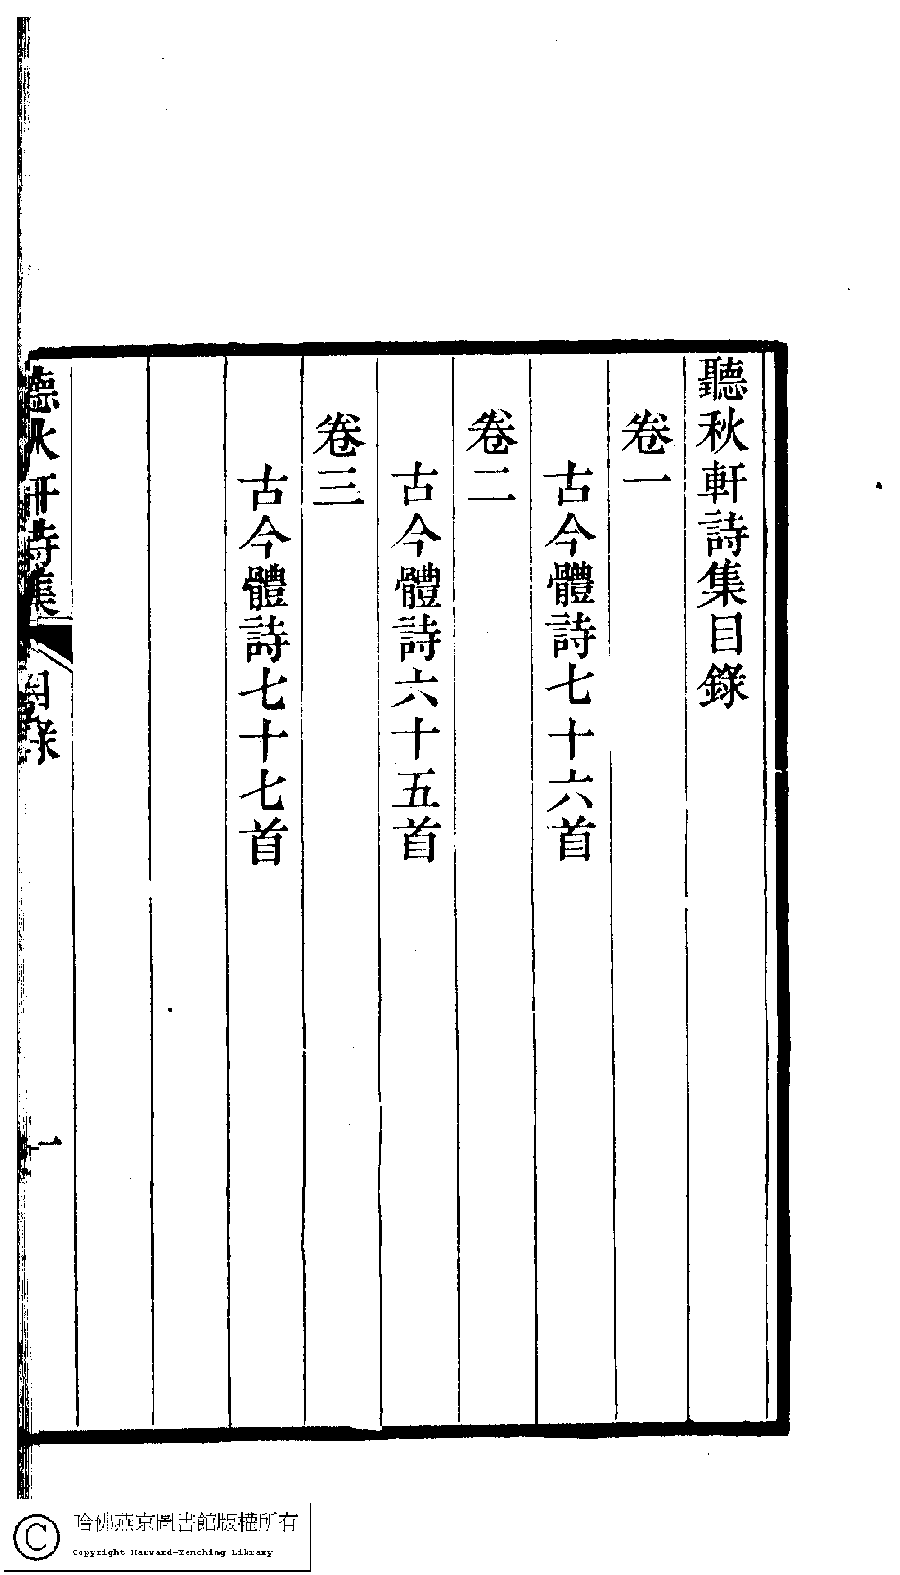 聽秋軒詩集目錄
卷一
古今體詩七十六首
卷二
古今體詩六十五首
卷三
古今體詩七十七首
聽秋軒詩集
目錄
一
哈佛燕京圖書館版權所有
Copyright Harvard-Yenching Library